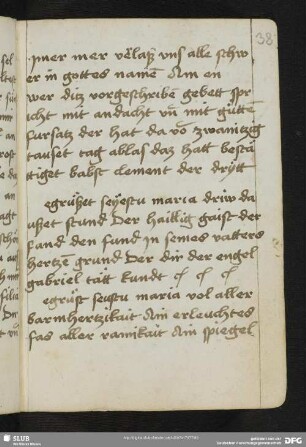 38
ymer mer verlasz vns alle schw
er in gottes namē Am en
wer ditz vorgeschribē gebett spr
icht mit andacht vn̄ mit güttē
fursatz der hat da vō zwaintzig
tauset tag ablas daz hatt bestä
ttiget babst clement der drytt
egrüßet seyestu maria driw da
uset stund Der hailig gaist der
fand den fund In seines vatters
hertze grund Der dir der engel
gabriel tätt kundt
egrüst seystu maria vol aller
barmhertzikait Ain erleuchtes
fas aller rainikait Ain spiegel
SLUB
DFG